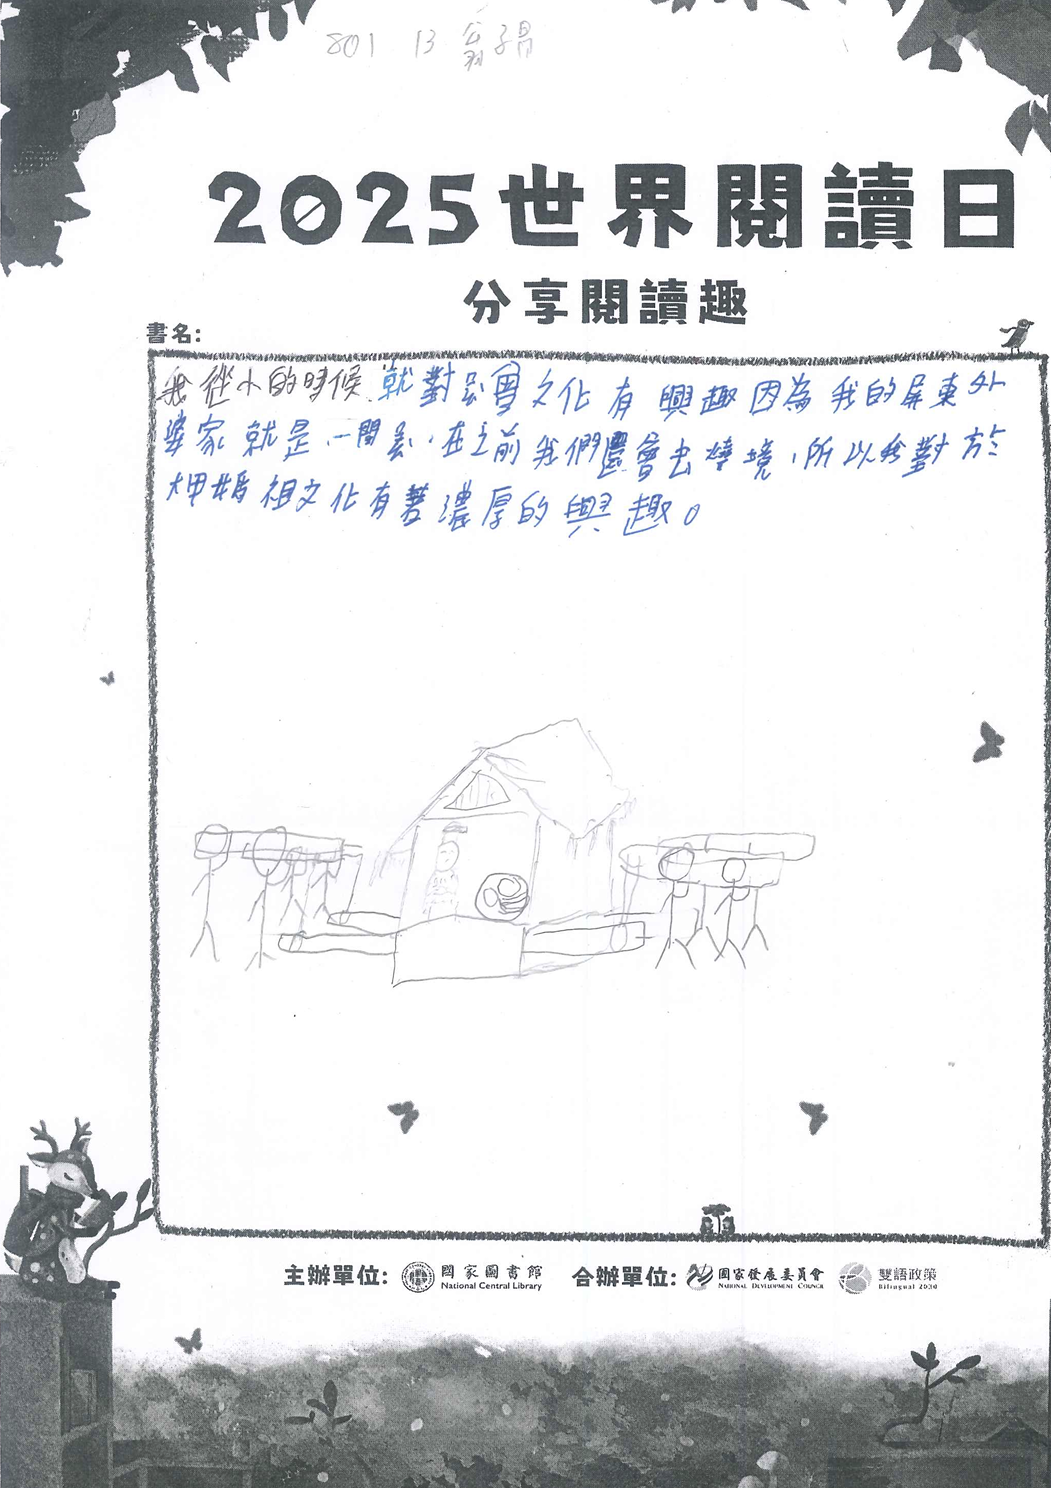 801 13 翁子昂
2025世界閱讀日
分享閱讀趣
書名:
我從小的時候就對宮文化有興趣因為我的屏東外
婆家就是一間宮,在之前我們還會去遶境,所以我對於
大甲媽祖文化有著濃厚的興趣。
主辦單位: 國家圖書館 National Central Library 合辦單位: 國家發展委員會 NATIONAL DEVELOPMENT COUNCIL 雙語政策 Bilingual 2030